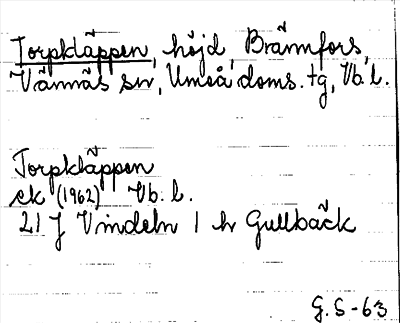 Torpkläppen, höjd, Brännfors,
Vännäs sn, Umeå doms. tg, Vb. l.
Torpkläppen
ek (1962) Vb. l.
21 J Vindeln 1 h Gullbäck
G. S-63